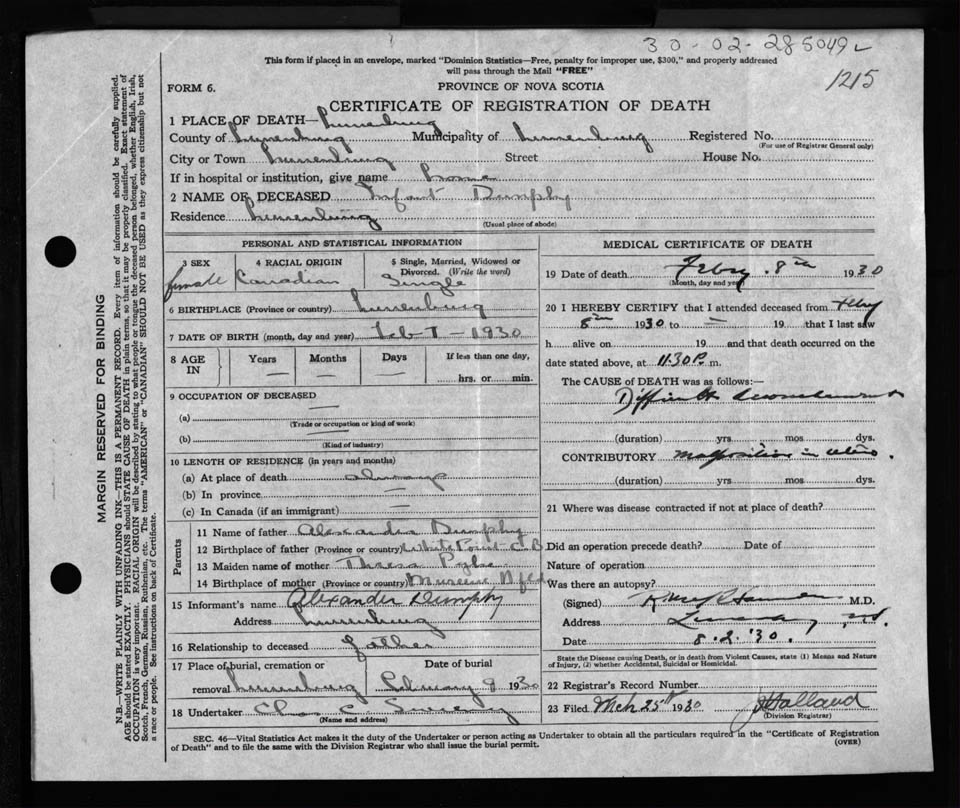 30-02-285049
1215
This form if placed in an envelope, marked "Dominion Statistics—Free, penalty for improper use, $300," and properly addressed
will pass through the Mail "FREE"
FORM 6.
PROVINCE OF NOVA SCOTIA
CERTIFICATE OF REGISTRATION OF DEATH
1 PLACE OF DEATH— Lunenburg
County of Lunenburg Municipality of Lunenburg Registered No.
(For use of Registrar General only)
City or Town Lunenburg Street House No.
If in hospital or institution, give name home
2 NAME OF DECEASED Infant Dumphy
Residence Lunenburg
(Usual place of abode)
PERSONAL AND STATISTICAL INFORMATION
3 SEX female
4 RACIAL ORIGIN Canadian
5 Single, Married, Widowed or
Divorced. (Write the word)
Single
6 BIRTHPLACE (Province or country) Lunenburg
7 DATE OF BIRTH (month, day and year) Feb 7 - 1930
8 AGE IN
Years — Months — Days —
If less than one day,
hrs. or min.
9 OCCUPATION OF DECEASED
(a) —
(Trade or occupation or kind of work)
(b) —
(Kind of industry)
10 LENGTH OF RESIDENCE (in years and months)
(a) At place of death always
(b) In province —
(c) In Canada (if an immigrant) —
Parents
11 Name of father Alexander Dumphy
12 Birthplace of father (Province or country) White Point C.B
13 Maiden name of mother Theresa
14 Birthplace of mother (Province or country) Nfld
15 Informant's name Alexander Dumphy
Address Lunenburg
16 Relationship to deceased father
17 Place of burial, cremation or Date of burial
removal Lunenburg February 9 1930
18 Undertaker Chas C.
(Name and address)
MEDICAL CERTIFICATE OF DEATH
19 Date of death Febry. 8th 1930
(Month, day and year)
20 I HEREBY CERTIFY that I attended deceased from Feby
8th 1930 to — 19 that I last saw
h alive on 19 and that death occurred on the
date stated above, at 11.30 P. m.
The CAUSE OF DEATH was as follows:—
Difficult
(duration) yrs mos dys.
CONTRIBUTORY Malposition in utero.
(duration) yrs mos dys.
21 Where was disease contracted if not at place of death?
Did an operation precede death? Date of
Nature of operation
Was there an autopsy?
(Signed) M.D.
Address Lunenburg
Date 8.2.'30.
State the Disease causing Death, or in death from Violent Causes, state (1) Means and Nature
of Injury, (2) whether Accidental, Suicidal or Homicidal.
22 Registrar's Record Number
23 Filed Mch 25th 1930
(Division Registrar)
SEC. 46—Vital Statistics Act makes it the duty of the Undertaker or person acting as Undertaker to obtain all the particulars required in the "Certificate of Registration
of Death" and to file the same with the Division Registrar who shall issue the burial permit.
(OVER)
MARGIN RESERVED FOR BINDING
N.B.—WRITE PLAINLY WITH UNFADING INK—THIS IS A PERMANENT RECORD. Every item of information should be carefully supplied.
AGE should be stated EXACTLY. PHYSICIANS should STATE CAUSE OF DEATH in plain terms, so that it may be properly classified. Exact statement of
OCCUPATION is very important. RACIAL ORIGIN will be described by stating to what people or tongue the deceased person belonged, whether English, Irish,
Scotch, French, German, Russian, Ruthenian, etc. The terms "AMERICAN" or "CANADIAN" SHOULD NOT BE USED as they express citizenship but not
a race or people. See instructions on back of Certificate.